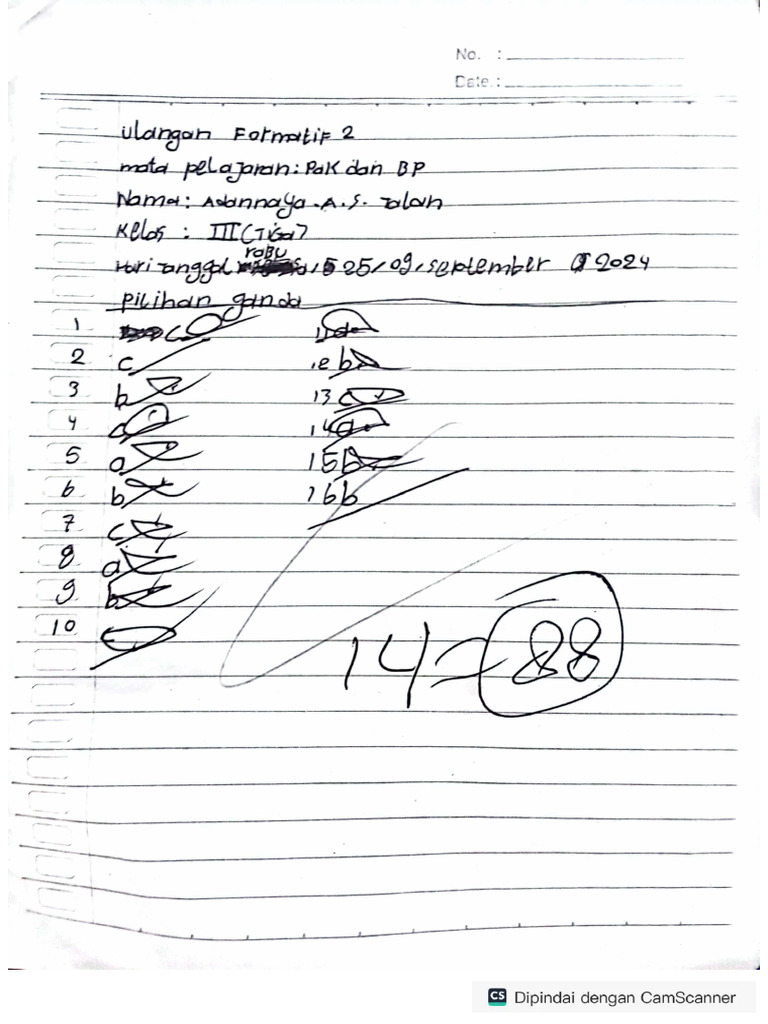 No. :
Date. :
ulangan Formatif 2
mata pelajaran: Pak dan BP
Nama: Adannaya .A.S. Jalan
Kelas : III (Tiga)
rabu
Hari tanggal 25/09/september 2024
pilihan ganda
1 c
2 c
3 b
4
5 a
6 b
7 c
8 a
9 b
10
11
12 b
13 c
14
15 b
16 b
14 = 88
CS Dipindai dengan CamScanner